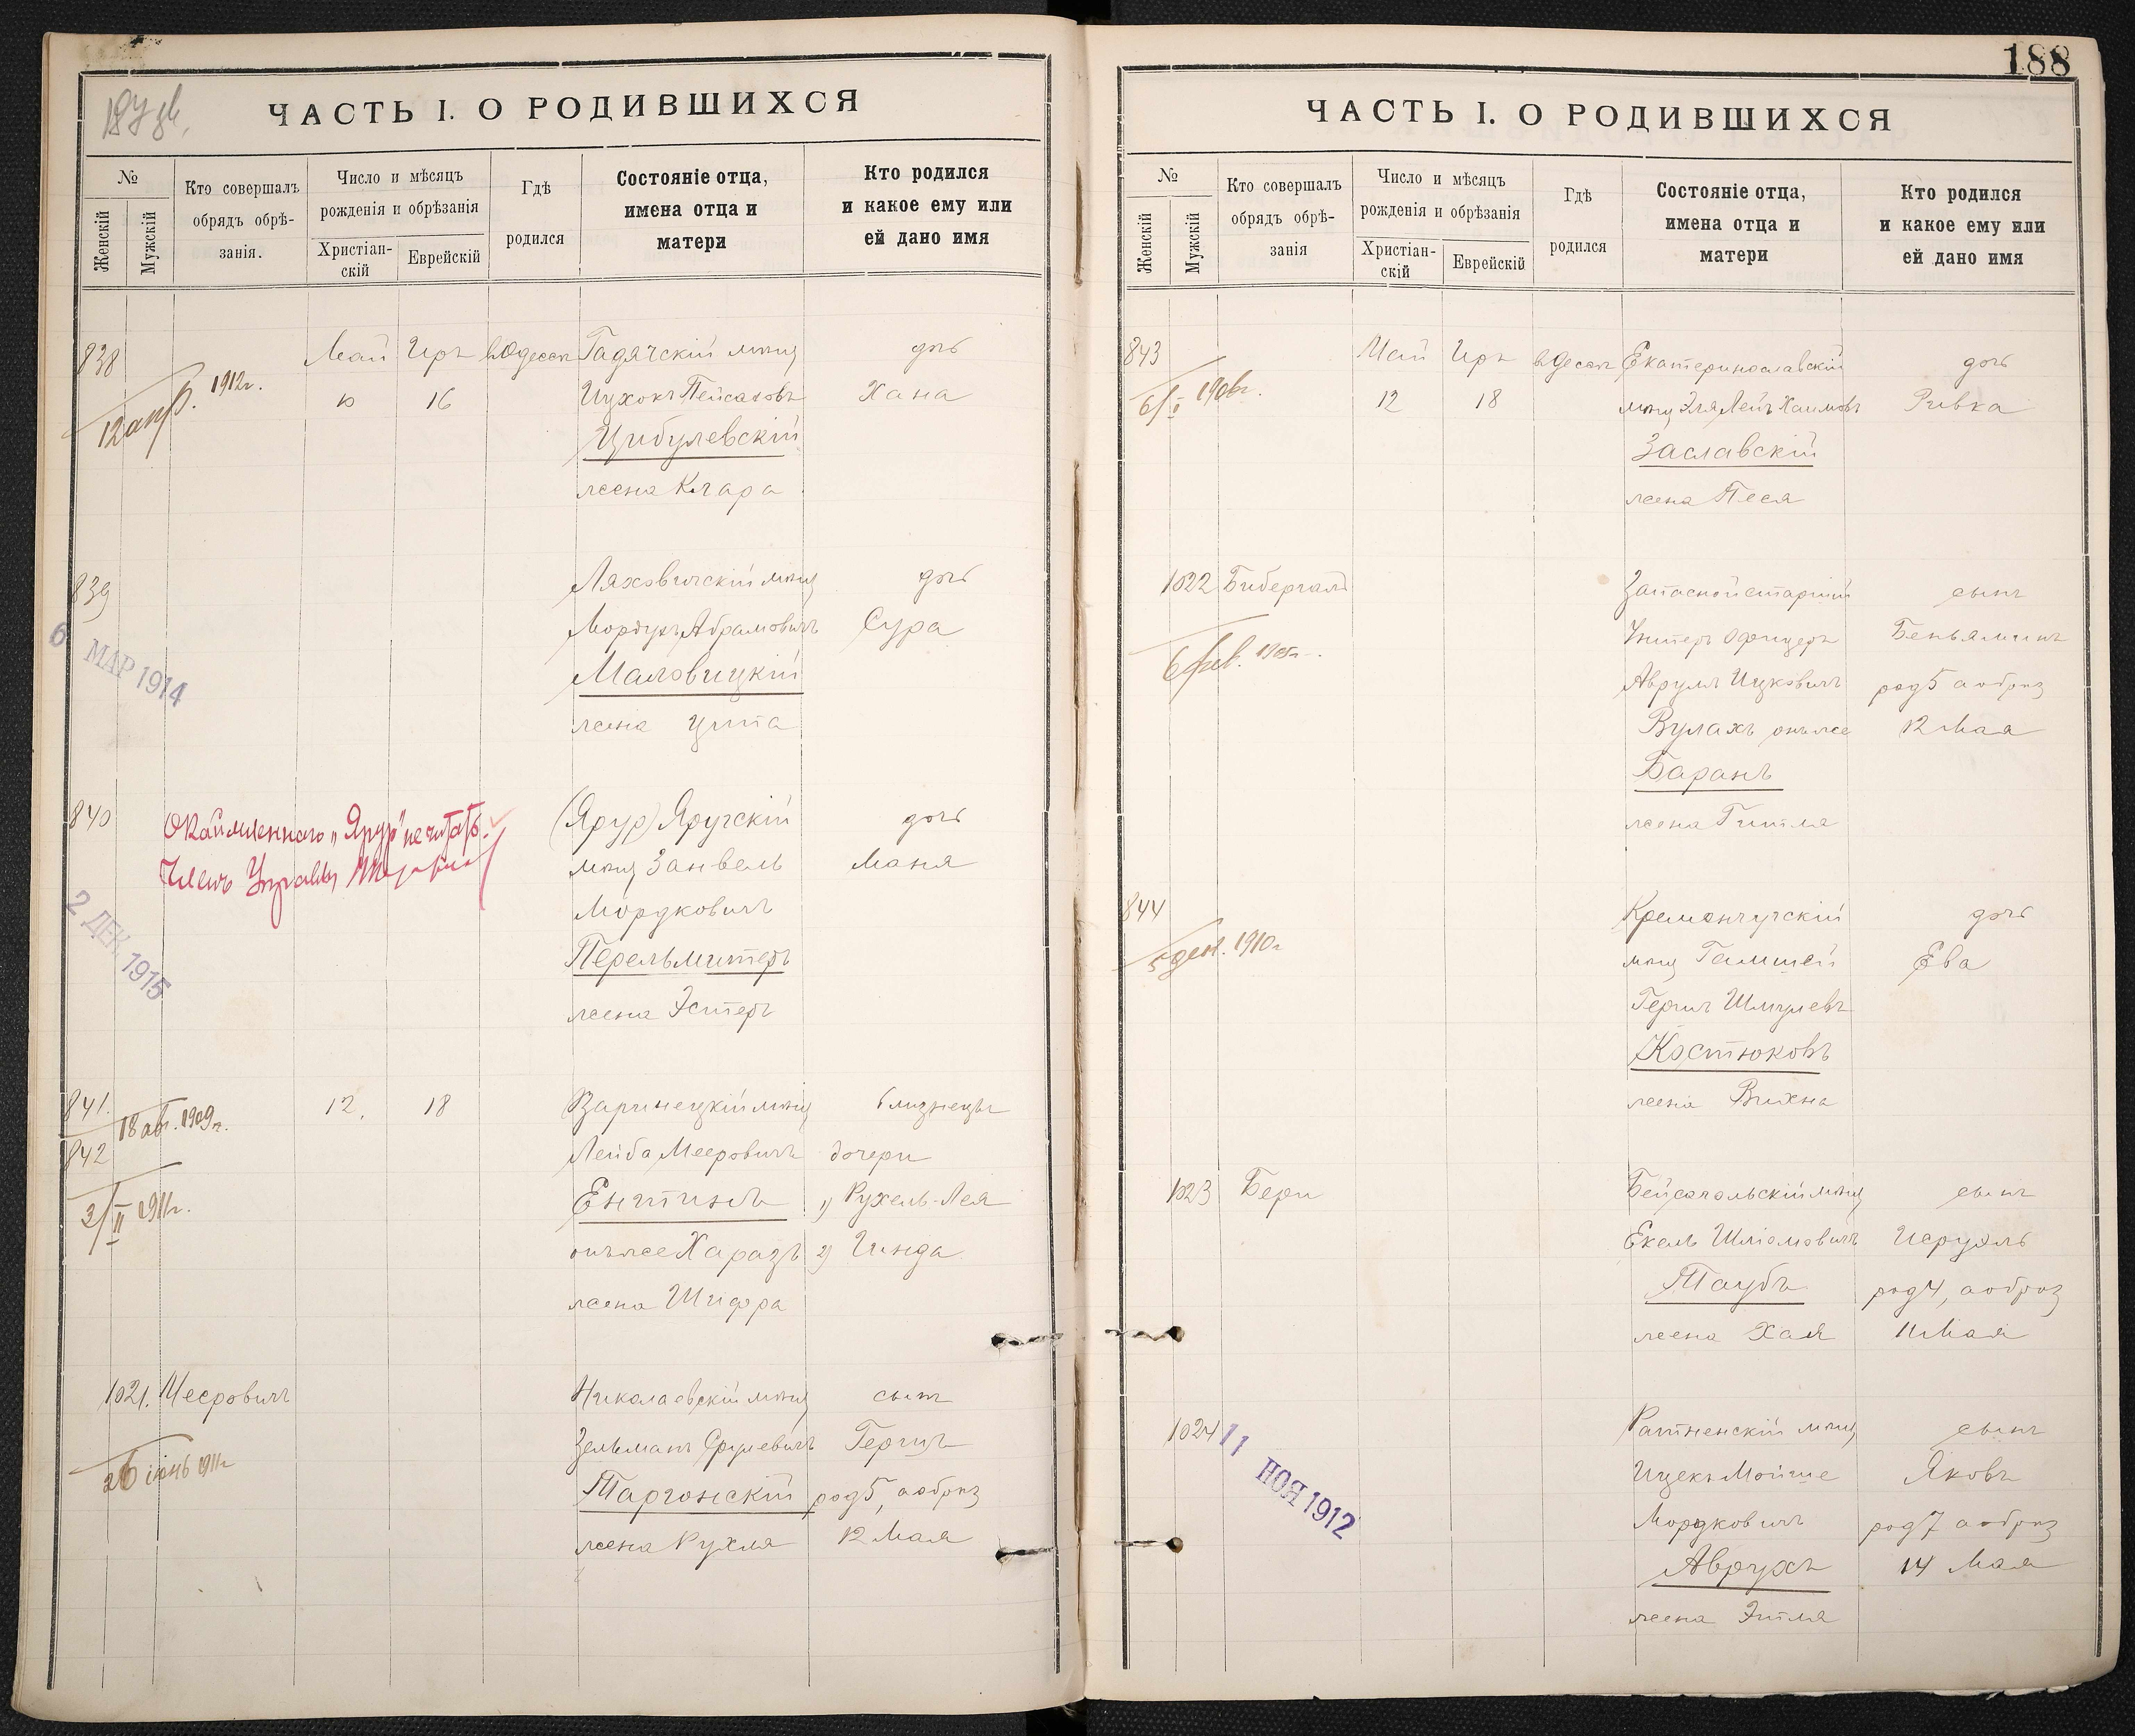 188
ЧАСТЬ I. О РОДИВШИХСЯ
№
Женскій
Мужскій
Кто совершалъ
обрядъ обрѣ-
занія.
Число и мѣсяцъ
рожденія и обрѣзанія
Христіан-
скій
Еврейскій
Гдѣ
родился
Состояніе отца,
имена отца и
матери
Кто родился
и какое ему или
ей дано имя
838
12 апр. 1912г.
Май
10
Иръ
16
в Одессѣ
Гадячскій мѣщ
Ицхокъ Пейсаховъ
Цибулевскій
жена Клара
дочь
Хана
839
6 МАР 1914
Ляховичскій мѣщ
Мордухъ Абрамовичъ
Маловицкій
жена Цита
дочь
Сура
840
2 ДЕК. 1915
Окаймленнаго „Яруг" не читать.
Членъ Управы
(Яруг) Яругскій
мѣщ Занвель
Мордковичъ
Перельмитеръ
жена Эстеръ
дочь
Маня
841.
842
18 авг. 1909г.
3/II 1911г.
12.
18
Заринецкій мѣщ
Лейба Мееровичъ
Ентинъ
онъ же Харазъ
жена Шифра
близнецы
дочери
1) Рухель-Лея
2) Гинда
1021.
Мееровичъ
26 іюнь 1911г
Николаевскій мѣщ
Зельманъ Срулевичъ
Таргонскій
жена Рухля
сынъ
Гершъ
род 5, а обрѣз
12 Мая
ЧАСТЬ I. О РОДИВШИХСЯ
№
Женскій
Мужскій
Кто совершалъ
обрядъ обрѣ-
занія
Число и мѣсяцъ
рожденія и обрѣзанія
Христіан-
скій
Еврейскій
Гдѣ
родился
Состояніе отца,
имена отца и
матери
Кто родился
и какое ему или
ей дано имя
843
Май
12
Иръ
18
в Одессѣ
Екатеринославскій
мѣщ Эля Лейб Хаимовъ
Заславскій
жена Песя
дочь
Ривка
1022
Бибергалъ
6 фев. 1905г.
Запасной старшій
Унтеръ Офицеръ
Аврумъ Ицковичъ
Вулахъ онъ же
Баранъ
жена Гитля
сынъ
Беньяминъ
род 5 а обрѣз
12 Мая
844
5 дек. 1910г
Кременчугскій
мѣщ
Гершъ Шмулевъ
Костюковъ
жена Вихна
дочь
Ева
1023
Бери
Бейсагольскій мѣщ
Екель Шліомовичъ
Таубъ
жена Хая
сынъ
Исруэль
род 4, а обрѣз
11 Мая
1024
11 НОЯ 1912
Ратненскій мѣщ
Ицекъ Мойше
Мордковичъ
Аврухъ
жена Этля
сынъ
Яковъ
род 7 а обрѣз
14 Мая